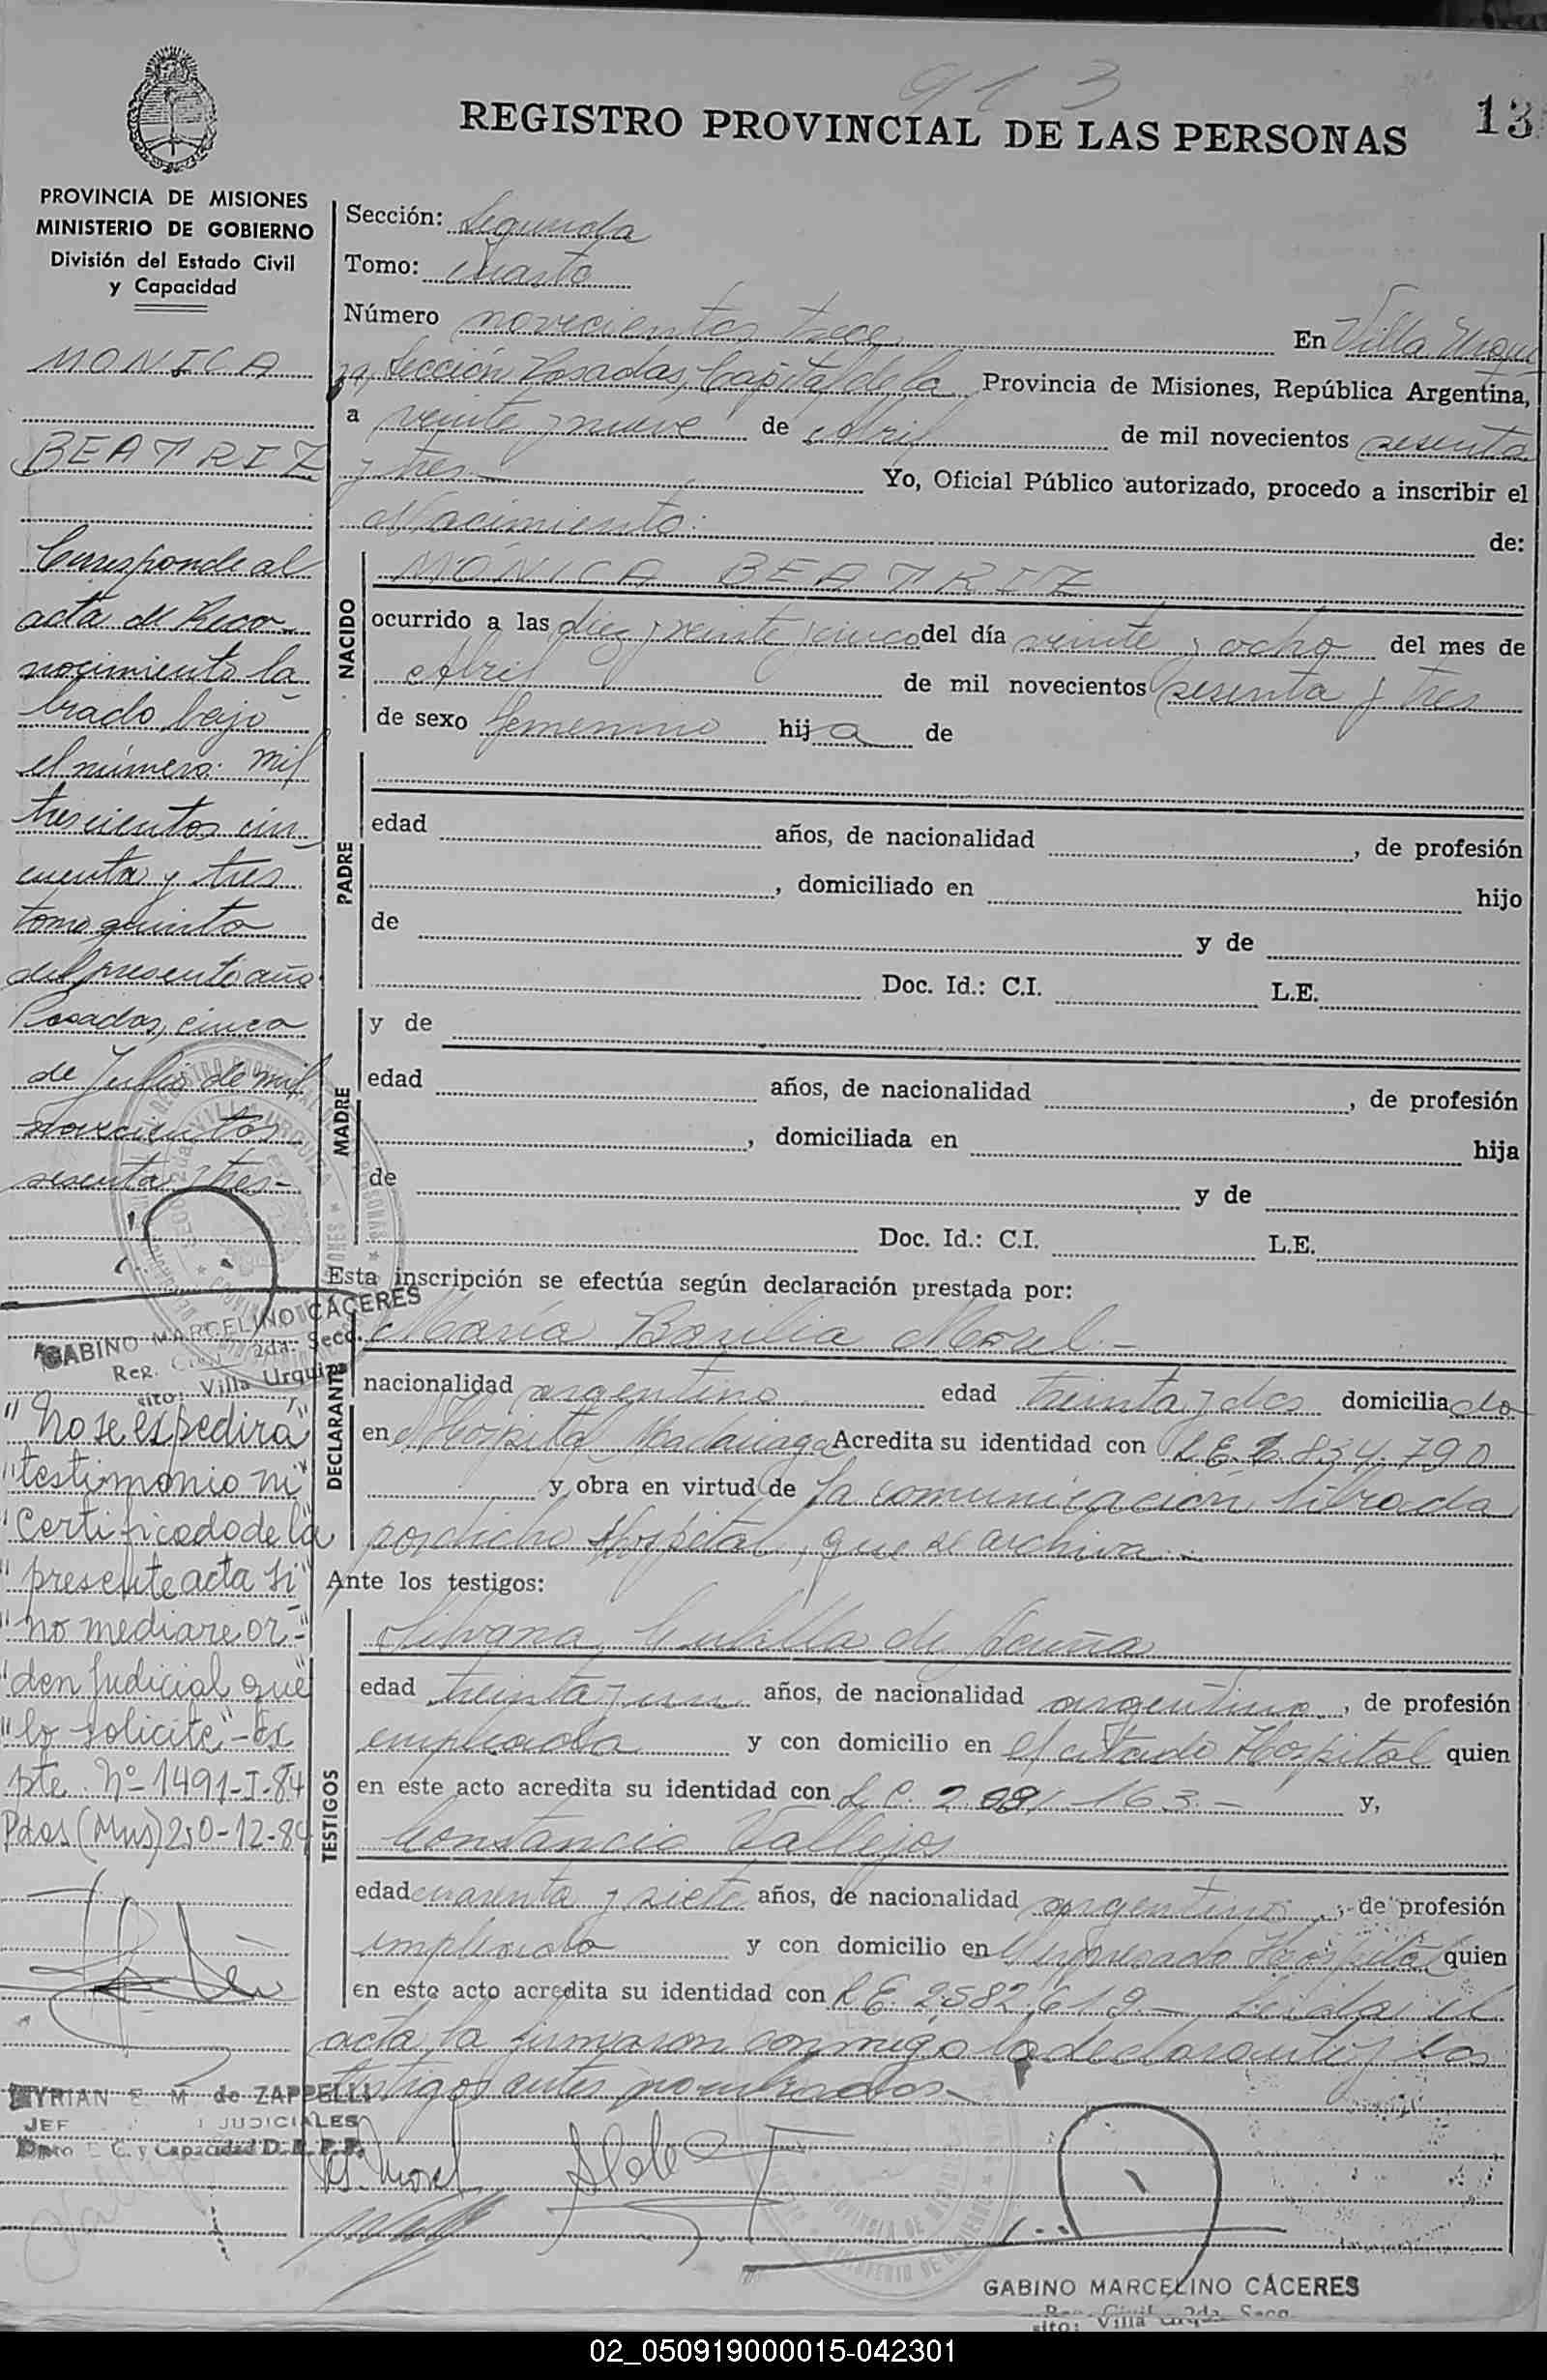 913
13
REGISTRO PROVINCIAL DE LAS PERSONAS
PROVINCIA DE MISIONES
MINISTERIO DE GOBIERNO
División del Estado Civil
y Capacidad
MONICA
BEATRIZ
Corresponde al
acta de Reco-
nocimiento la-
brado bajo
el número: mil
trescientos cin-
cuenta y tres
tomo quinto
del presente año
Posadas, cinco
de Julio de mil
novecientos
sesenta y tres-
GABINO MARCELINO CÁCERES
Reg. Civil 2da. Secc.
sito: Villa Urquiza
"No se expedirá"
"testimonio ni"
"Certificado de la
"presente acta si"
"no mediare or-"
"den Judicial que"
"lo solicite"-Ex
pte. Nº 1491-I-84
Pdas (Mns) 20-12-84
MYRIAN E. M. de ZAPPELLI
JEF JUDICIALES
Dpto E. C. y Capacidad D.R.P.P.
Sección: Segunda
Tomo: cuarto
Número novecientos trece En Villa Urqui
za, Sección Posadas, Capital de la Provincia de Misiones, República Argentina,
a veinte y nueve de Abril de mil novecientos sesenta
y tres Yo, Oficial Público autorizado, procedo a inscribir el
Nacimiento: de:
NACIDO
MÓNICA BEATRIZ
ocurrido a las diez y veinte y cinco del día veinte y ocho del mes de
Abril de mil novecientos sesenta y tres
de sexo femenino hija de
PADRE
edad años, de nacionalidad , de profesión
, domiciliado en hijo
de y de
Doc. Id.: C.I. L.E.
MADRE
y de
edad años, de nacionalidad , de profesión
, domiciliada en hija
de y de
Doc. Id.: C.I. L.E.
Esta inscripción se efectúa según declaración prestada por:
DECLARANTE
María Basilia Morel -
nacionalidad argentina edad treinta y dos domiciliado
en el Hospital Madariaga Acredita su identidad con 834.790
y obra en virtud de la comunicación librada
por dicho Hospital, que se archiva.-
Ante los testigos:
TESTIGOS
Silvana Cubilla de Acuña
edad treinta y un años, de nacionalidad argentina, de profesión
empleada y con domicilio en el citado Hospital quien
en este acto acredita su identidad con L C. 163.- y,
Constancio Vallejos
edad cuarenta y siete años, de nacionalidad argentino, de profesión
empleado y con domicilio en el expresado Hospital quien
en este acto acredita su identidad con L E. 2.582.619 - Leída el
acta, la firmaron conmigo la declarante y los
testigos antes nombrados.-
B. Morel
GABINO MARCELINO CÁCERES
Reg. Civil 2da. Secc.
sito: Villa Urquiza
02_050919000015-042301